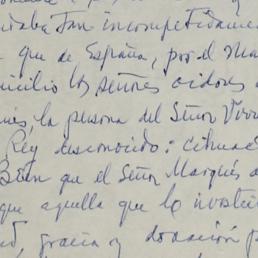 tan incompetidamen
que de España, por el Ma
icilio los señores oidores
la persona del Señor Virr
Rey desconocido: cituaci
Bien que el Señor Marqués
que aquella que lo invistie
gracia y donación p